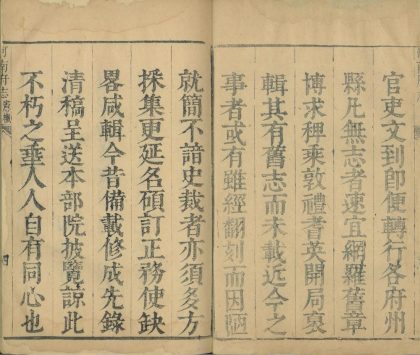 官吏文到即便轉行各府州
縣凡無志者速宜網羅舊章
博求稗乘敦禮耆英開局裒
輯其有舊志而未載近今之
事者或有雖經翻刻而因陋
就簡不諳史裁者亦須多方
採集更延名碩訂正務使缺
畧咸輯今昔備載修成先錄
清稿呈送本部院披覽諒此
不朽之埀人人自有同心也